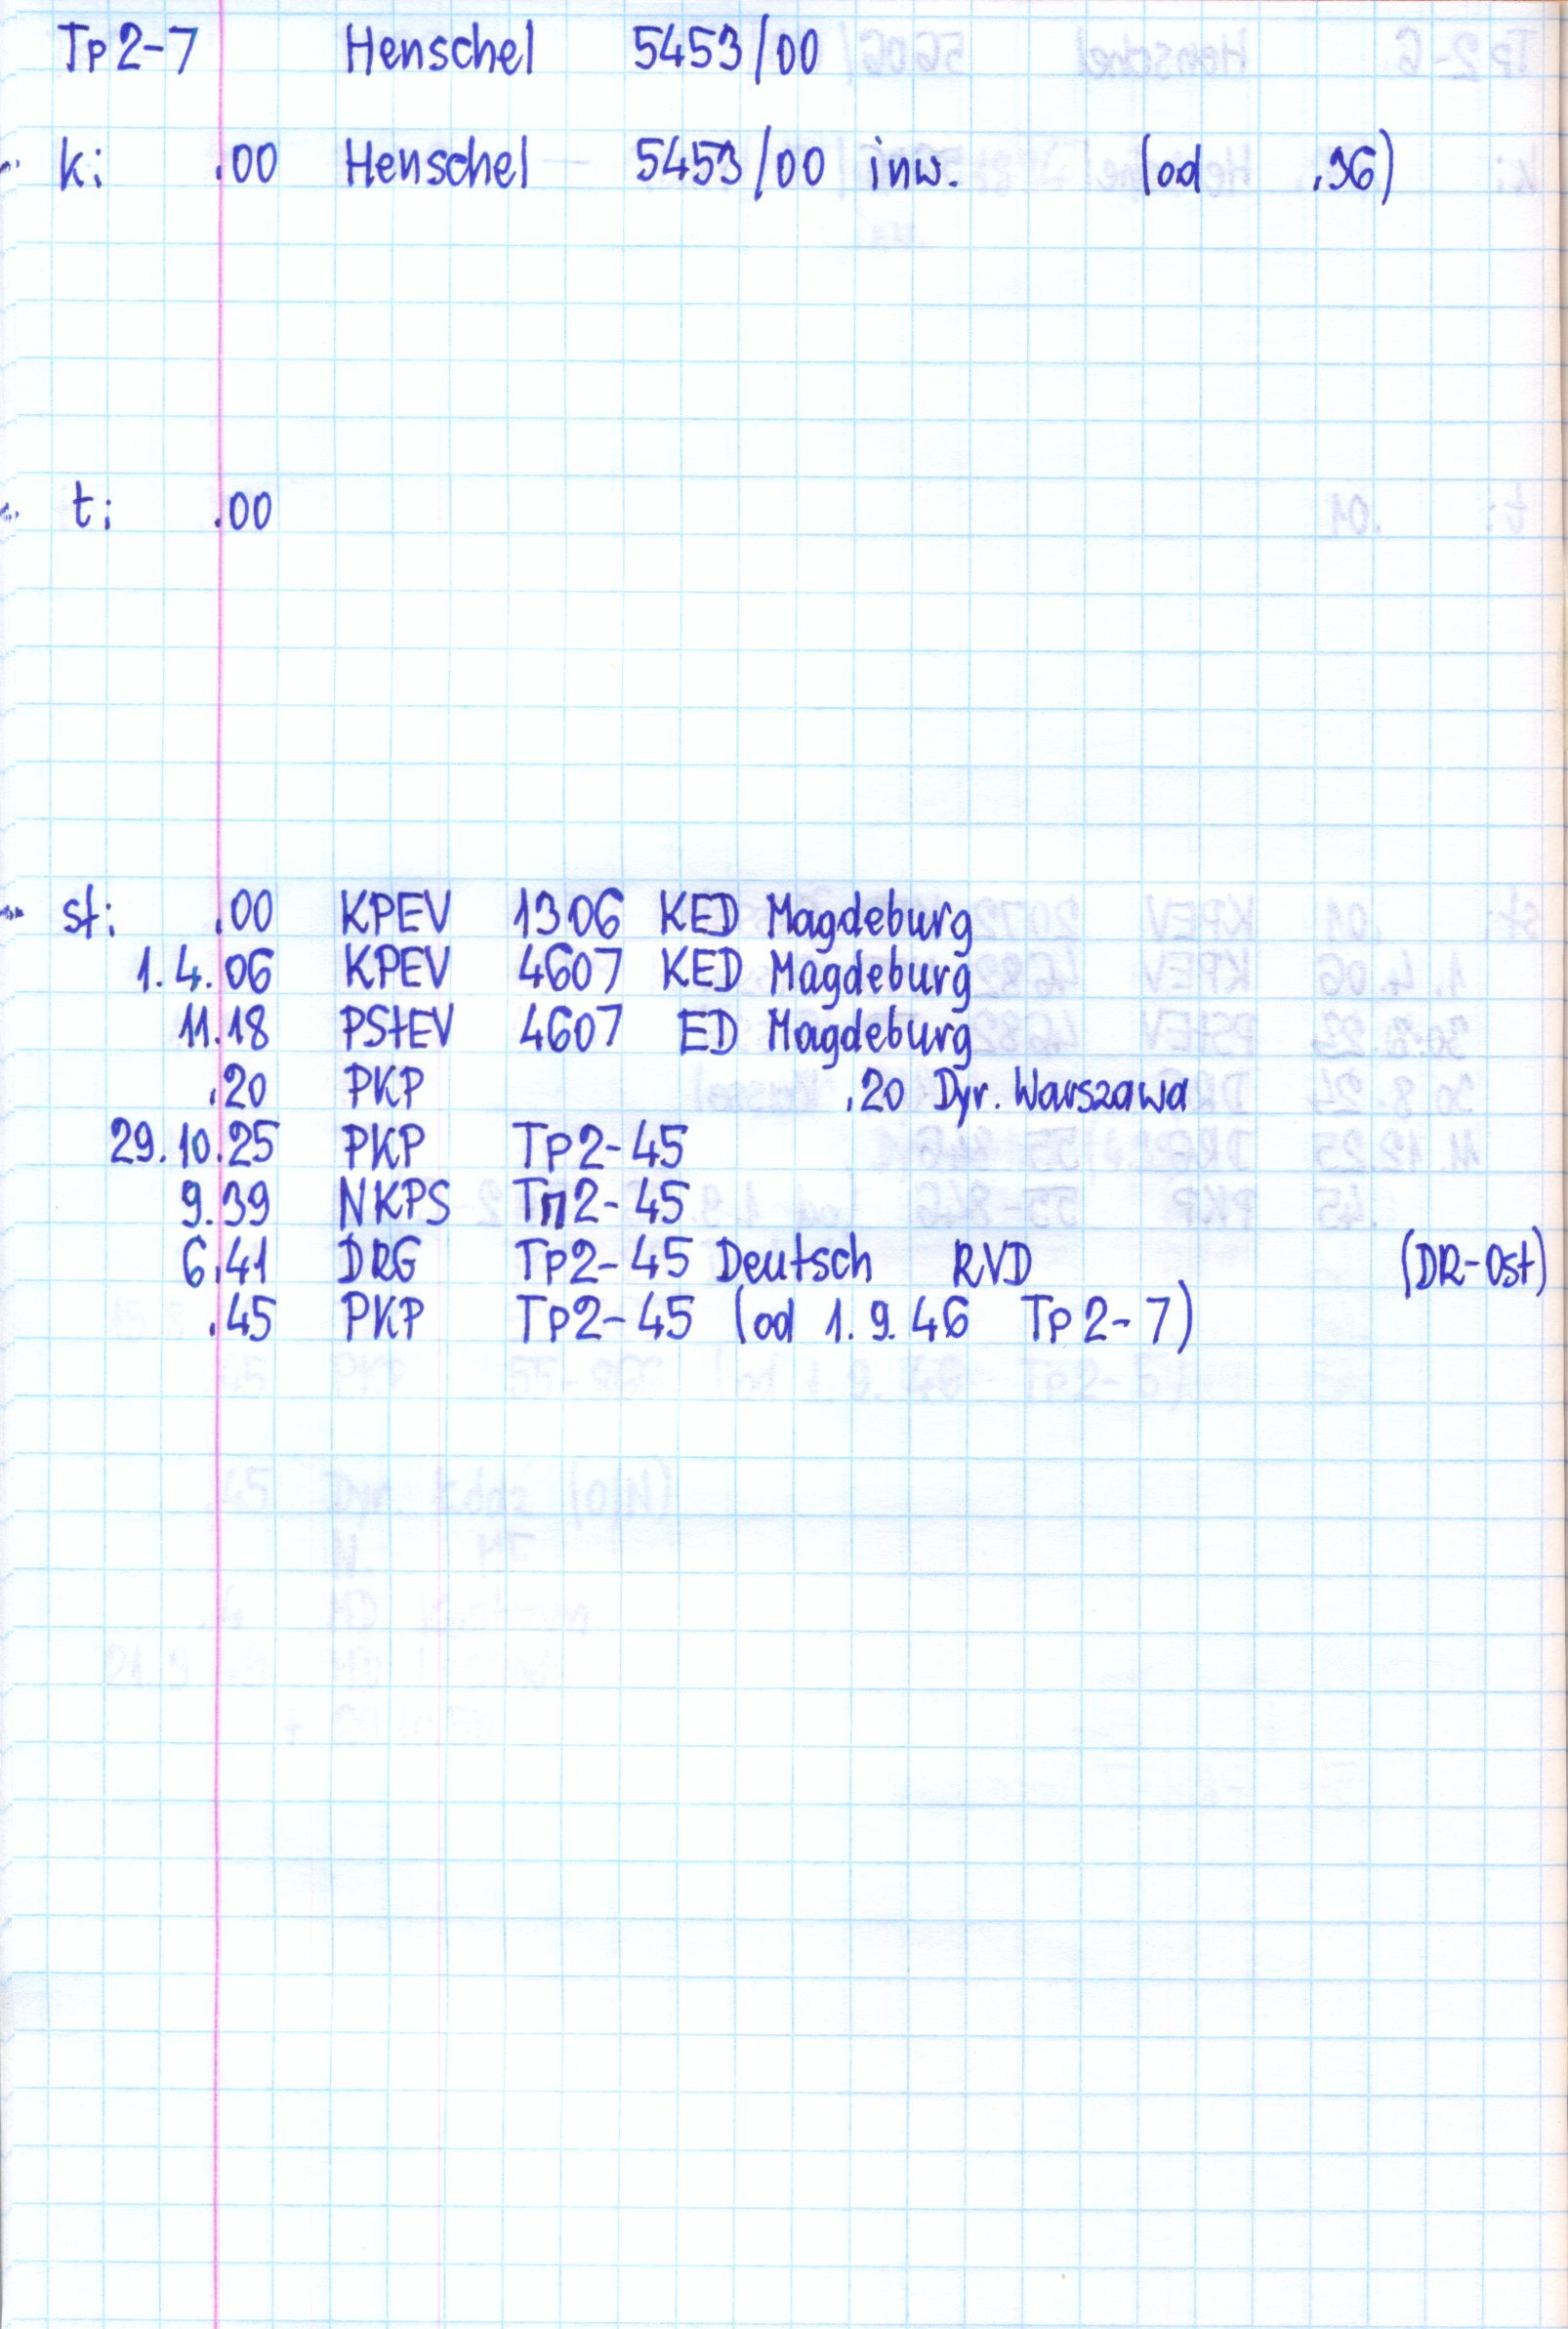 Tp2-7 Henschel 5453/00
k: .00 Henschel 5453/00 inw. (od .36)
t: .00
st: .00 KPEV 1306 KED Magdeburg
1.4.06 KPEV 4607 KED Magdeburg
11.18 PStEV 4607 ED Magdeburg
.20 PKP .20 Dyr. Warszawa
29.10.25 PKP Tp2-45
9.39 NKPS Tп2-45
6.41 DRG Tp2-45 Deutsch RVD (DR-Ost)
.45 PKP Tp2-45 (od 1.9.46 Tp2-7)